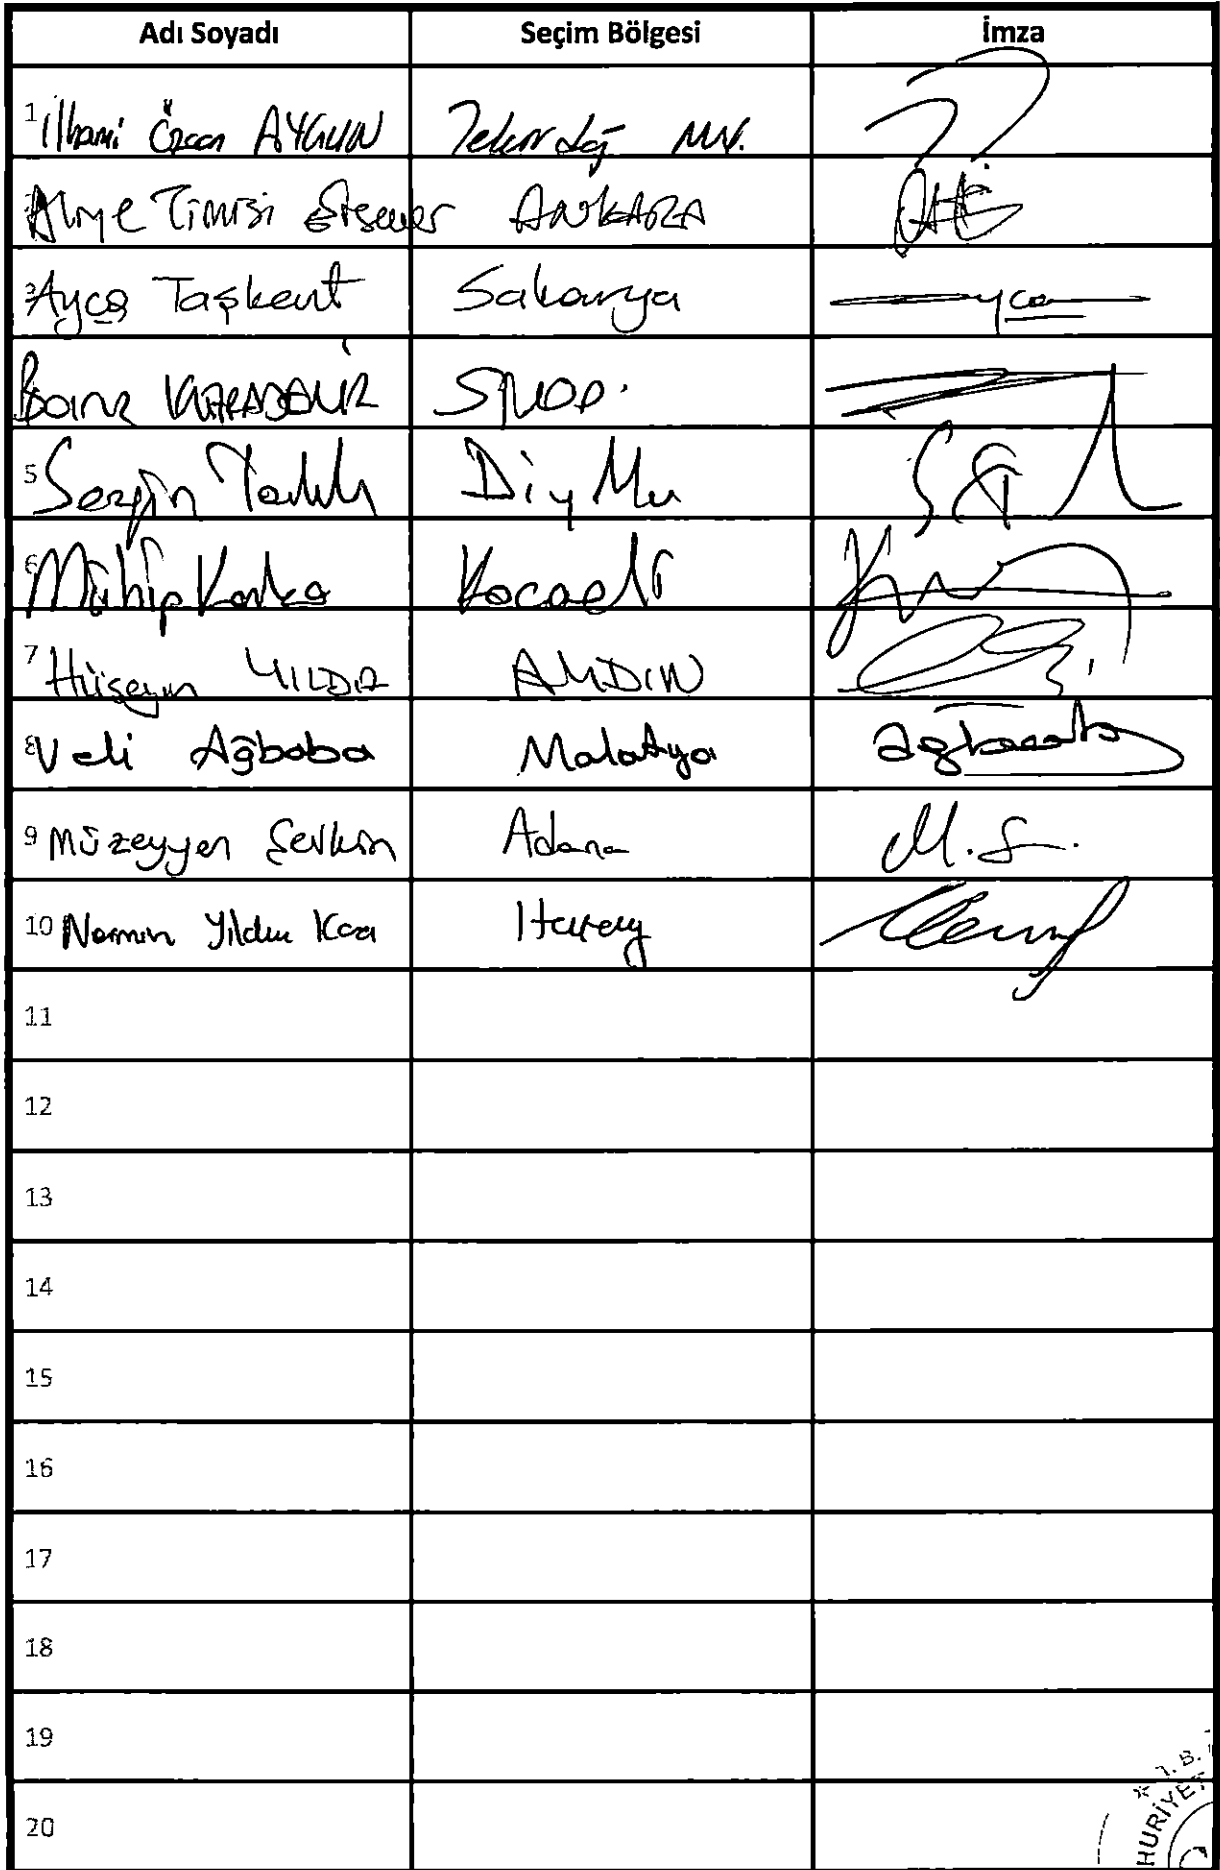 Adı Soyadı Seçim Bölgesi İmza
1 İlhami Özcan AYGUN Tekirdağ MV.
Aliye Timisi Ersever ANKARA
3 Ayça Taşkent Sakarya yca
Barış KARADENİZ SİNOP.
5 Sezgin
6 Mühip Kanko Kocaeli
7 Hüseyin YILDIZ AYDIN
8 Veli Ağbaba Malatya ağbaba
9 Müzeyyen Şevkin Adana M.Ş.
10 Nermin Yıldırım Kara Hatay
11
12
13
14
15
16
17
18
19
20
HURİYET